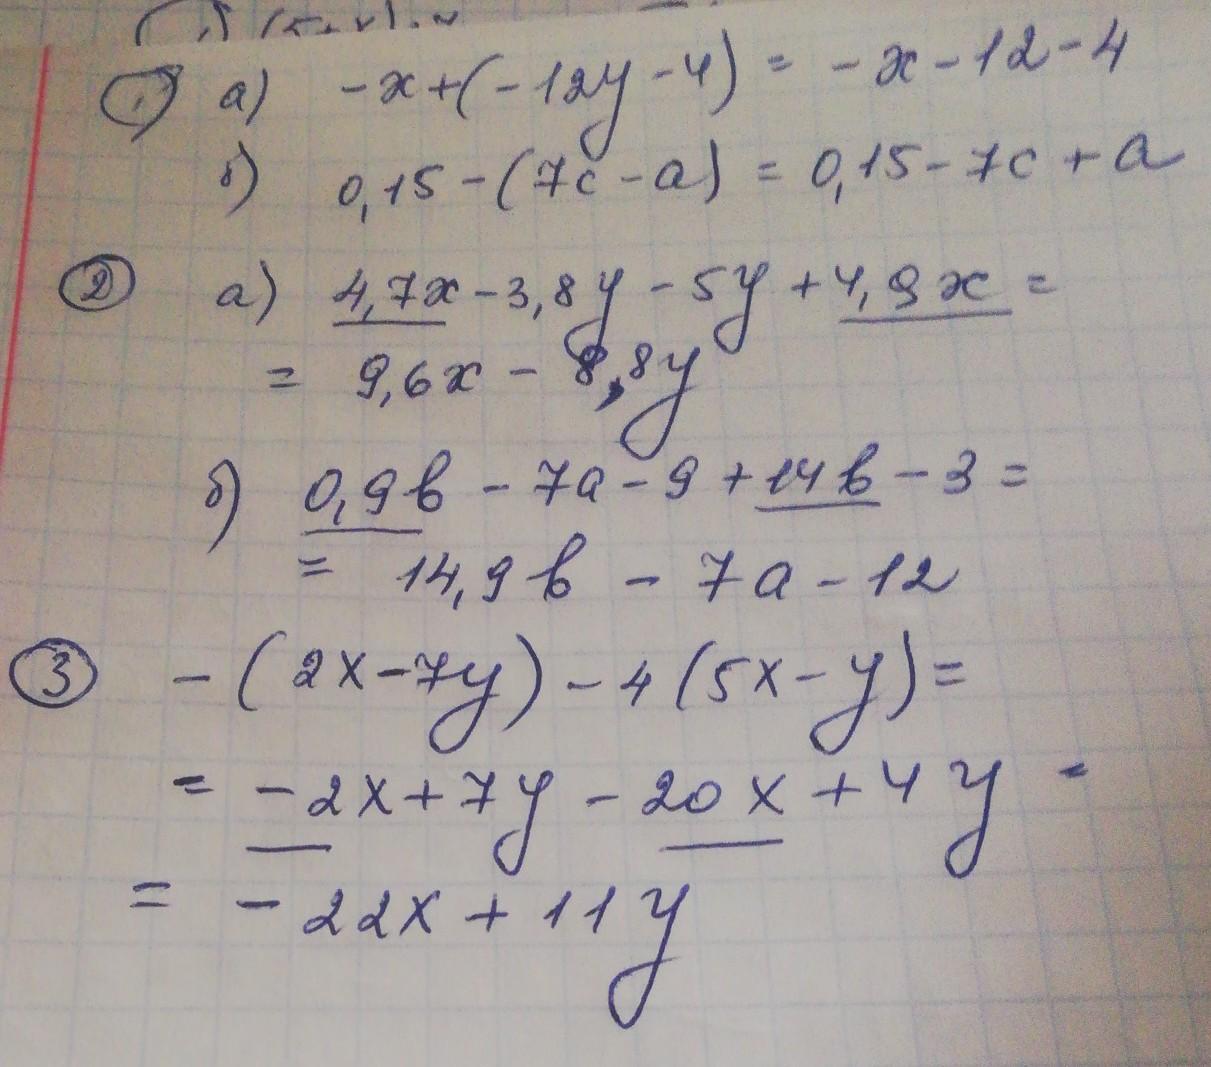 ① а) -x+(-12y-4) = -x-12-4
б) 0,15-(7c-a) = 0,15-7c+a
② а) 4,7x-3,8y-5y+4,9x=
= 9,6x - 8,8y
б) 0,9b - 7a-9+14b-3=
= 14,9b - 7a-12
③ -(2x-7y)-4(5x-y)=
= -2x+7y-20x+4y =
= -22x+11y